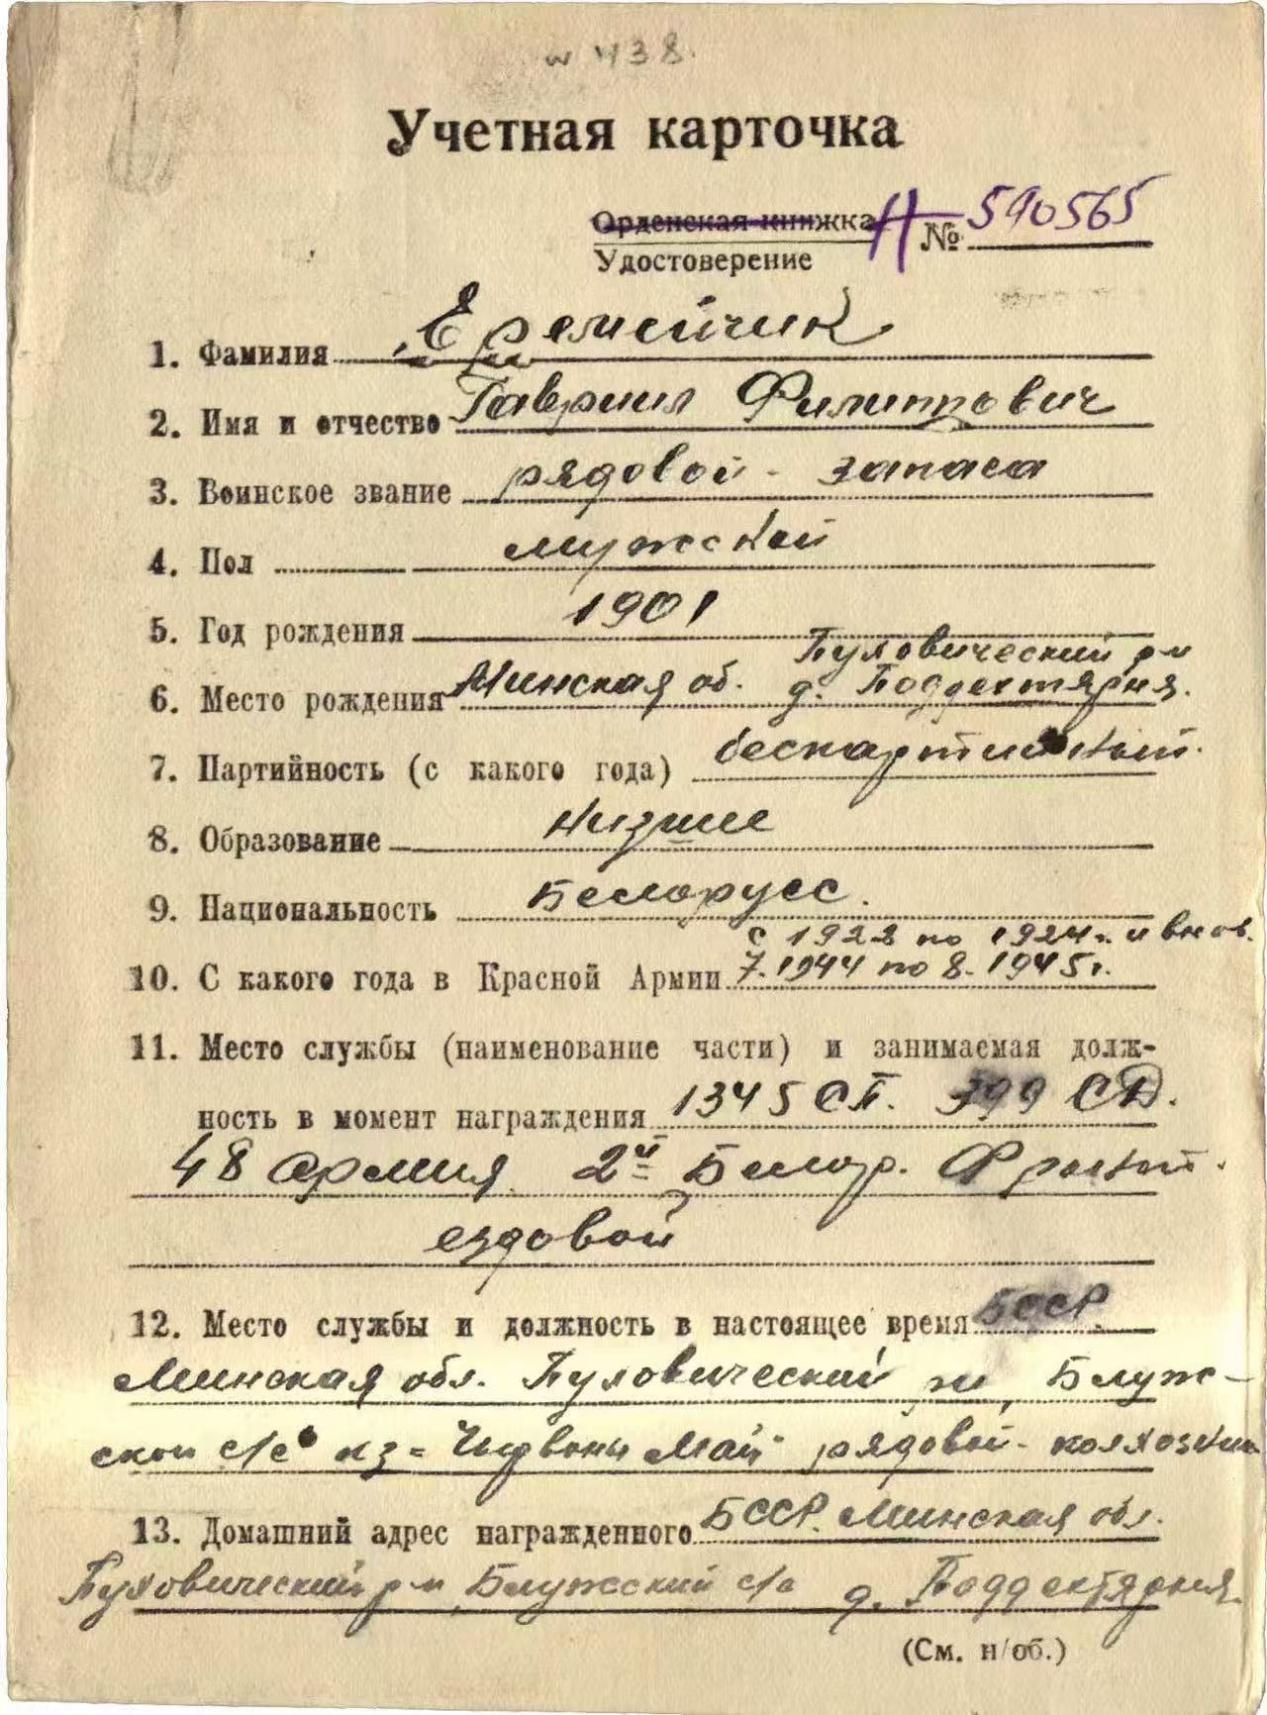 438.
Учетная карточка
Орденская книжка Н № 590565
Удостоверение
1. Фамилия Еремейчик
2. Имя и отчество Гавриил Филиппович
3. Воинское звание рядовой - запаса
4. Пол мужской
5. Год рождения 1901
Пуховический р-н
6. Место рождения Минская об. д. Поддегтярня.
7. Партийность (с какого года) беспартийный.
8. Образование низшее
9. Национальность Белорусс.
с 1922 по 1924г. и вновь
10. С какого года в Красной Армии 7.1944 по 8.1945г.
11. Место службы (наименование части) и занимаемая долж-
ность в момент награждения 1345 СП. 399 СД.
48 армия 2й Белор. Фронт.
ездовой
12. Место службы и должность в настоящее время БССР.
Минская обл. Пуховический р-н, Блуж-
ский с/с к-з "Чырвоны Май" рядовой - колхозник
13. Домашний адрес награжденного БССР. Минская обл.
Пуховический р-н, Блужский с/с д. Поддегтярня.
(См. н/об.)